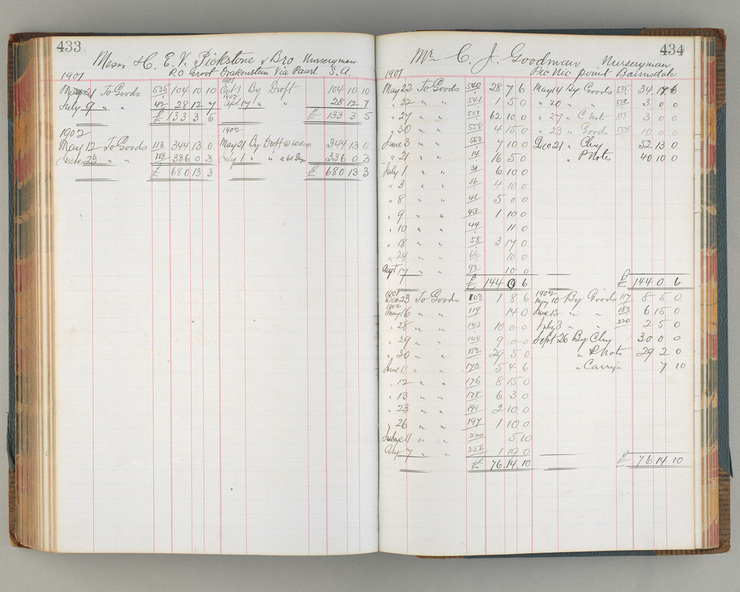 433
Messrs H. E. V. Pickstone & Bro Nurseryman
1901 P.O. Groot Drakenstein Via Paarl S. A.
May 21 To Goods 104 10 10 Oct 1 By Draft 104 10 10
July 9 " " 28 12 7 " " 28 12 7
£ 133 3 5 £ 133 3 5
1902 1902
May 12 To Goods 344 13 0 May 21 By Draft 344 13 0
June " " 336 0 3 July 1 " " 336 0 3
£ 680 13 3 £ 680 13 3
434
Mr C. J. Goodman Nurseryman
1901 Pic Nic point Bairnsdale
May 22 To Goods 540 28 7 6 May 14 By Goods 34 17 6
" 22 " " 541 1 5 0 " 20 " " 3 0 0
" 27 " " 62 10 0 " 27 " C Note 3 0 0
" 30 " " 4 15 0 " 23 " Goods 10 0 0
June 3 " " 7 10 0 Dec 21 " Chq 52 13 0
" 21 " " 14 16 5 0 " P Note 40 10 0
July 1 " " 6 10 0
" 3 " " 4 10 0
" 8 " " 5 0 0
" 9 " " 1 10 0
" 10 " " 44 11 0
" 18 " " 58 3 17 0
" 24 " " 10 0
Sept 17 " " 10 0
£ 144 0 6 £ 144 0 6
1901 1902
Dec 23 To Goods 103 1 8 6 May 10 By Goods 117 8 5 0
1902
May 16 " " 119 14 0 June 13 " " 6 15 0
" 28 " " 10 0 0 July 3 " " 220 2 5 0
" 29 " " 9 0 0 Sept 26 By Chq 30 0 0
" 30 " " 29 5 0 " P Note 29 2 0
June " " 5 4 6 " 7 10
" 12 " " 176 8 15 0
" 13 " " 178 6 3 0
" 23 " " 191 2 10 0
" 26 " " 197 1 10 0
" " 220 5 10
" " 1 19 0
£ 76 14 10 £ 76 14 10